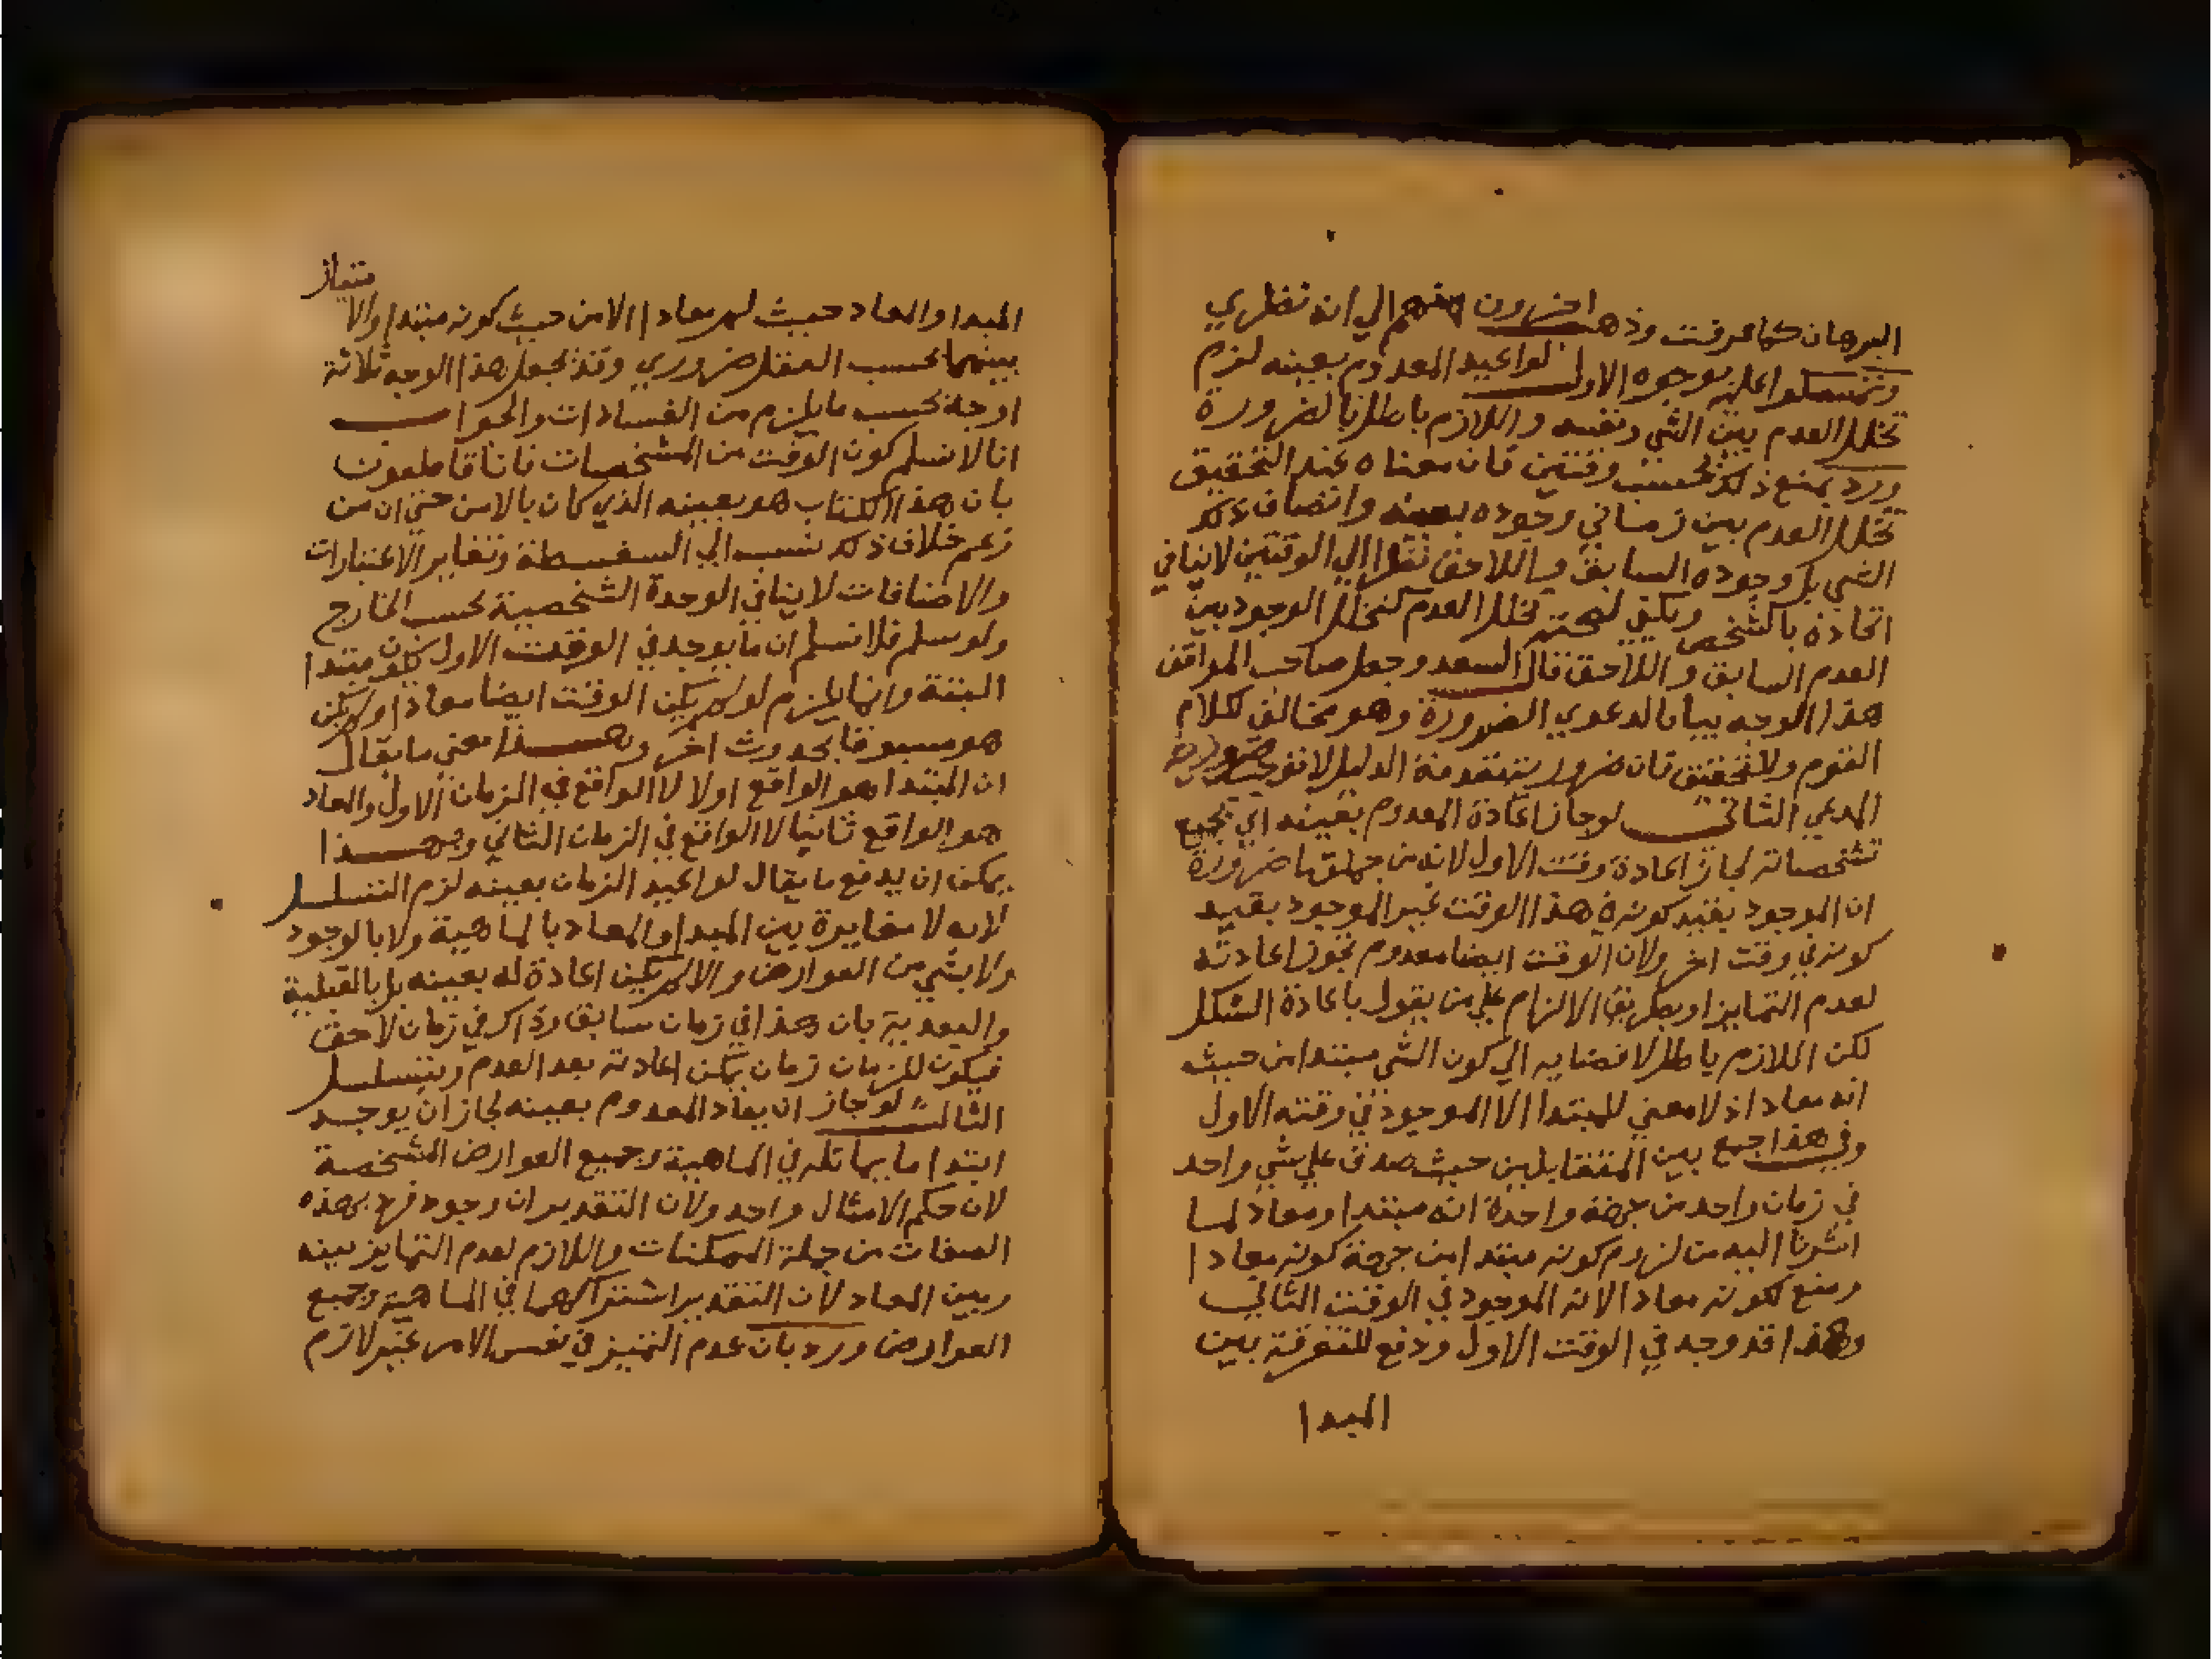 البرهان كما عرفت وذهب اخرون منهم الي انه نظري
وتمسكوا عليه بوجوه الاول لو اعيد المعدوم بعينه لزم
تخلل العدم بين الشي ونفسه واللازم باطل بالضرورة
ورد بمنع ذلك بحسب وقتين فان معناه عند التحقيق
تخلل العدم بين زماني وجوده بعينه واتصاف ذلك
الشي بل وجوده السابق واللاحق نظرا الي الوقتين لا ينافي
اتحاده بالشخص ويكفي لصحته تخلل العدم كتخلل الوجود بين
العدم السابق واللاحق قال السعد وجعل صاحب المواقف
هذا الوجه بيانا لدعوي الضرورة وهو مخالف لكلام
القوم وللتحقيق فان ضرورية مقدمة الدليل لا توجب ضرورية
المدعي الثاني لو جاز اعادة المعدوم بعينه اي بجميع
تشخصاته لجاز اعادة وقت الاول لانه من جملتها ضرورة
ان الموجود بقيد كونه في هذا الوقت غير الموجود بقيد
كونه في وقت اخر ولان الوقت ايضا معدوم تجوز اعادته
لعدم التمايز او بطريق الالزام علي من يقول باعادة الشكل
لكن اللازم باطل لافضايه الي كون الشي مبتدا من حيث
انه معاد اذ لا معني للمبتدا الا الموجود في وقته الاول
وفي هذا جمع بين المتقابلين حيث صدق علي شي واحد
في زمان واحد من جهة واحدة انه مبتدا ومعاد لما
اشرنا اليه من لزوم كونه مبتدا من جهة كونه معادا
ومنع لكونه معادا لانه الموجود في الوقت الثاني
وهذا قد وجد في الوقت الاول ودفع للتفرقة بين
المبدا
المبدا والمعاد حيث لم يعاد الا من حيث كونه مبتدا والا
متياز
بينهما بحسب العقل ضروري وقد نجعل هذا الوجه ثلاثة
اوجه بحسب ما يلزم من الفسادات والجواب
انا لا نسلم كون الوقت من المشخصات فانا قاطعون
بان هذا الكتاب هو بعينه الذي كان بالامس حتي ان من
زعم خلاف ذلك نسب الي السفسطة وتغاير الاعتبارات
والاضافات لا ينافي الوحدة الشخصية بحسب الخارج
ولو سلم فلا نسلم ان ما يوجد في الوقت الاول يكون مبتدا
البتة وانما يلزم لو لم يكن الوقت ايضا معادا ولم يكن
هو مسبوقا بحدوث اخر وهذا معني ما يقال
ان المبتدا هو الواقع اولا لا الواقع في الزمان الاول والمعاد
هو الواقع ثانيا لا الواقع في الزمان الثاني وبهذا
يمكن ان يدفع ما يقال لو اعيد الزمان بعينه لزم التسلسل
لانه لا مغايرة بين المبدا والمعاد بالماهية ولا بالوجود
ولا بشي من العوارض والا لم يكن اعادة له بعينه بل بالقبلية
والبعدية بان هذا في زمان سابق وذاك في زمان لاحق
فيكون للزمان زمان يمكن اعادته بعد العدم ويتسلسل
الثالث لو جاز ان يعاد المعدوم بعينه لجاز ان يوجد
ابتدا ما يماثله في الماهية وجميع العوارض المشخصة
لان حكم الامثال واحد ولان التقدير ان وجود فرد بهذه
الصفات من جملة الممكنات واللازم لعدم التمايز بينه
وبين المعاد لان التقدير اشتراكهما في الماهية وجميع
العوارض ورد بان عدم التميز في نفس الامر غير لازم